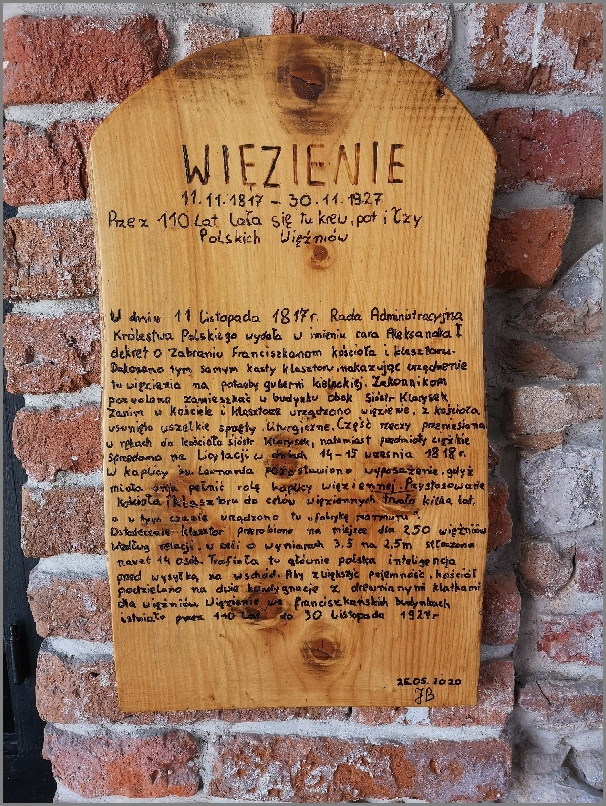 WIĘZIENIE
11.11.1817 - 30.11.1927
Przez 110 Lat Lała się tu krew, pot i Łzy
Polskich Więźniów
W dniu 11 Listopada 1817r. Rada Administracyjna
Królestwa Polskiego wydała w imieniu cara Aleksandra I
dekret o Zabraniu Franciszkanom kościoła i klasztoru.
Dokonano tym samym kasty klasztoru, nakazując urządzenie
tu więzienia na potrzeby guberni kieleckiej. Zakonnikom
pozwolono zamieszkać w budynku obok Sióstr Klarysek.
Zanim w Kościele i klasztorze urządzono więzienie, z kościoła
usunięto wszelkie sprzęty Liturgiczne. Część rzeczy przeniesiono
w rękach do kościoła sióstr Klarysek, natomiast przedmioty ciężkie
Sprzedano na Licytacji w dniach 14-15 września 1818r.
W kaplicy św. Leonarda pozostawiono wyposażenie, gdyż
miała ona pełnić rolę kaplicy więziennej. Przystosowanie
Kościoła i klasztoru do celów więziennych trwało kilka lat,
a w tym czasie urządzono tu „fabrykę marmuru".
Ostatecznie klasztor przerobiono na miejsce dla 250 więźniów
Według relacji, w celi o wymiarach 3.5 na 2,5m stłoczono
nawet 14 osób. Trafiała tu głównie polska inteligencja
przed wysyłką na wschód. Aby zwiększyć pojemność, kościół
podzielono na dwie kondygnacje z drewnianymi klatkami
dla więźniów Więzienie we franciszkańskich budynkach
istniało przez 110 Lat do 30 Listopada 1927r
26.05.2020
JB